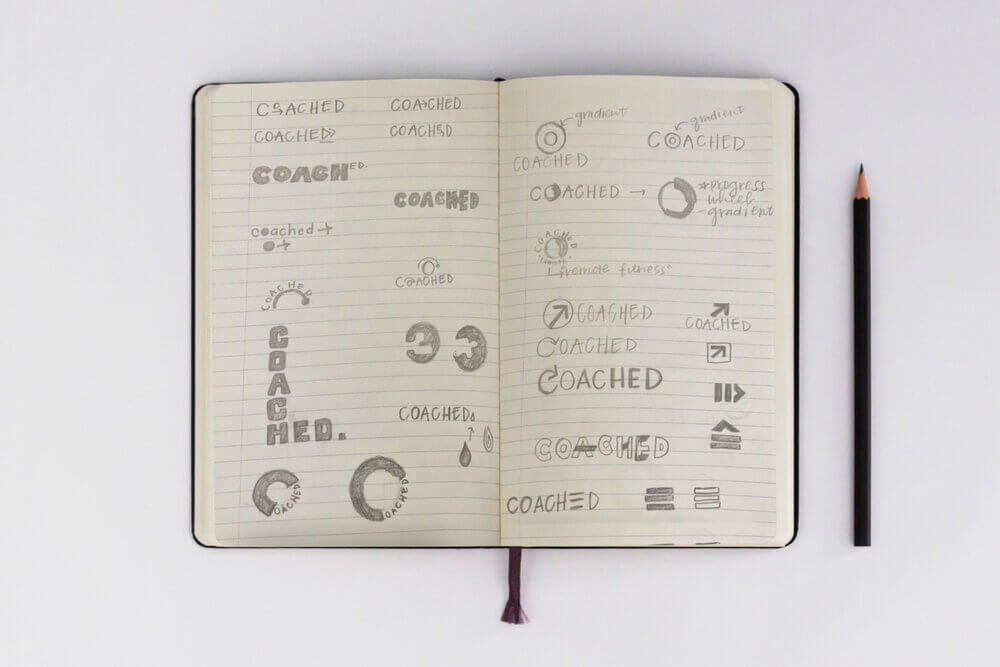 COACHED
COACHED
COACHED
COACHED
COACHED.
COACHED
coached
COACHED
COACHED
COACHED.
COACHED
COACHED
COACHED
gradient
COACHED
gradient
COACHED
COACHED
*progress
wheel
-gradient
COACHED
remote fitness"
COACHED
COACHED
COACHED
COACHED
COACHED
COACHED